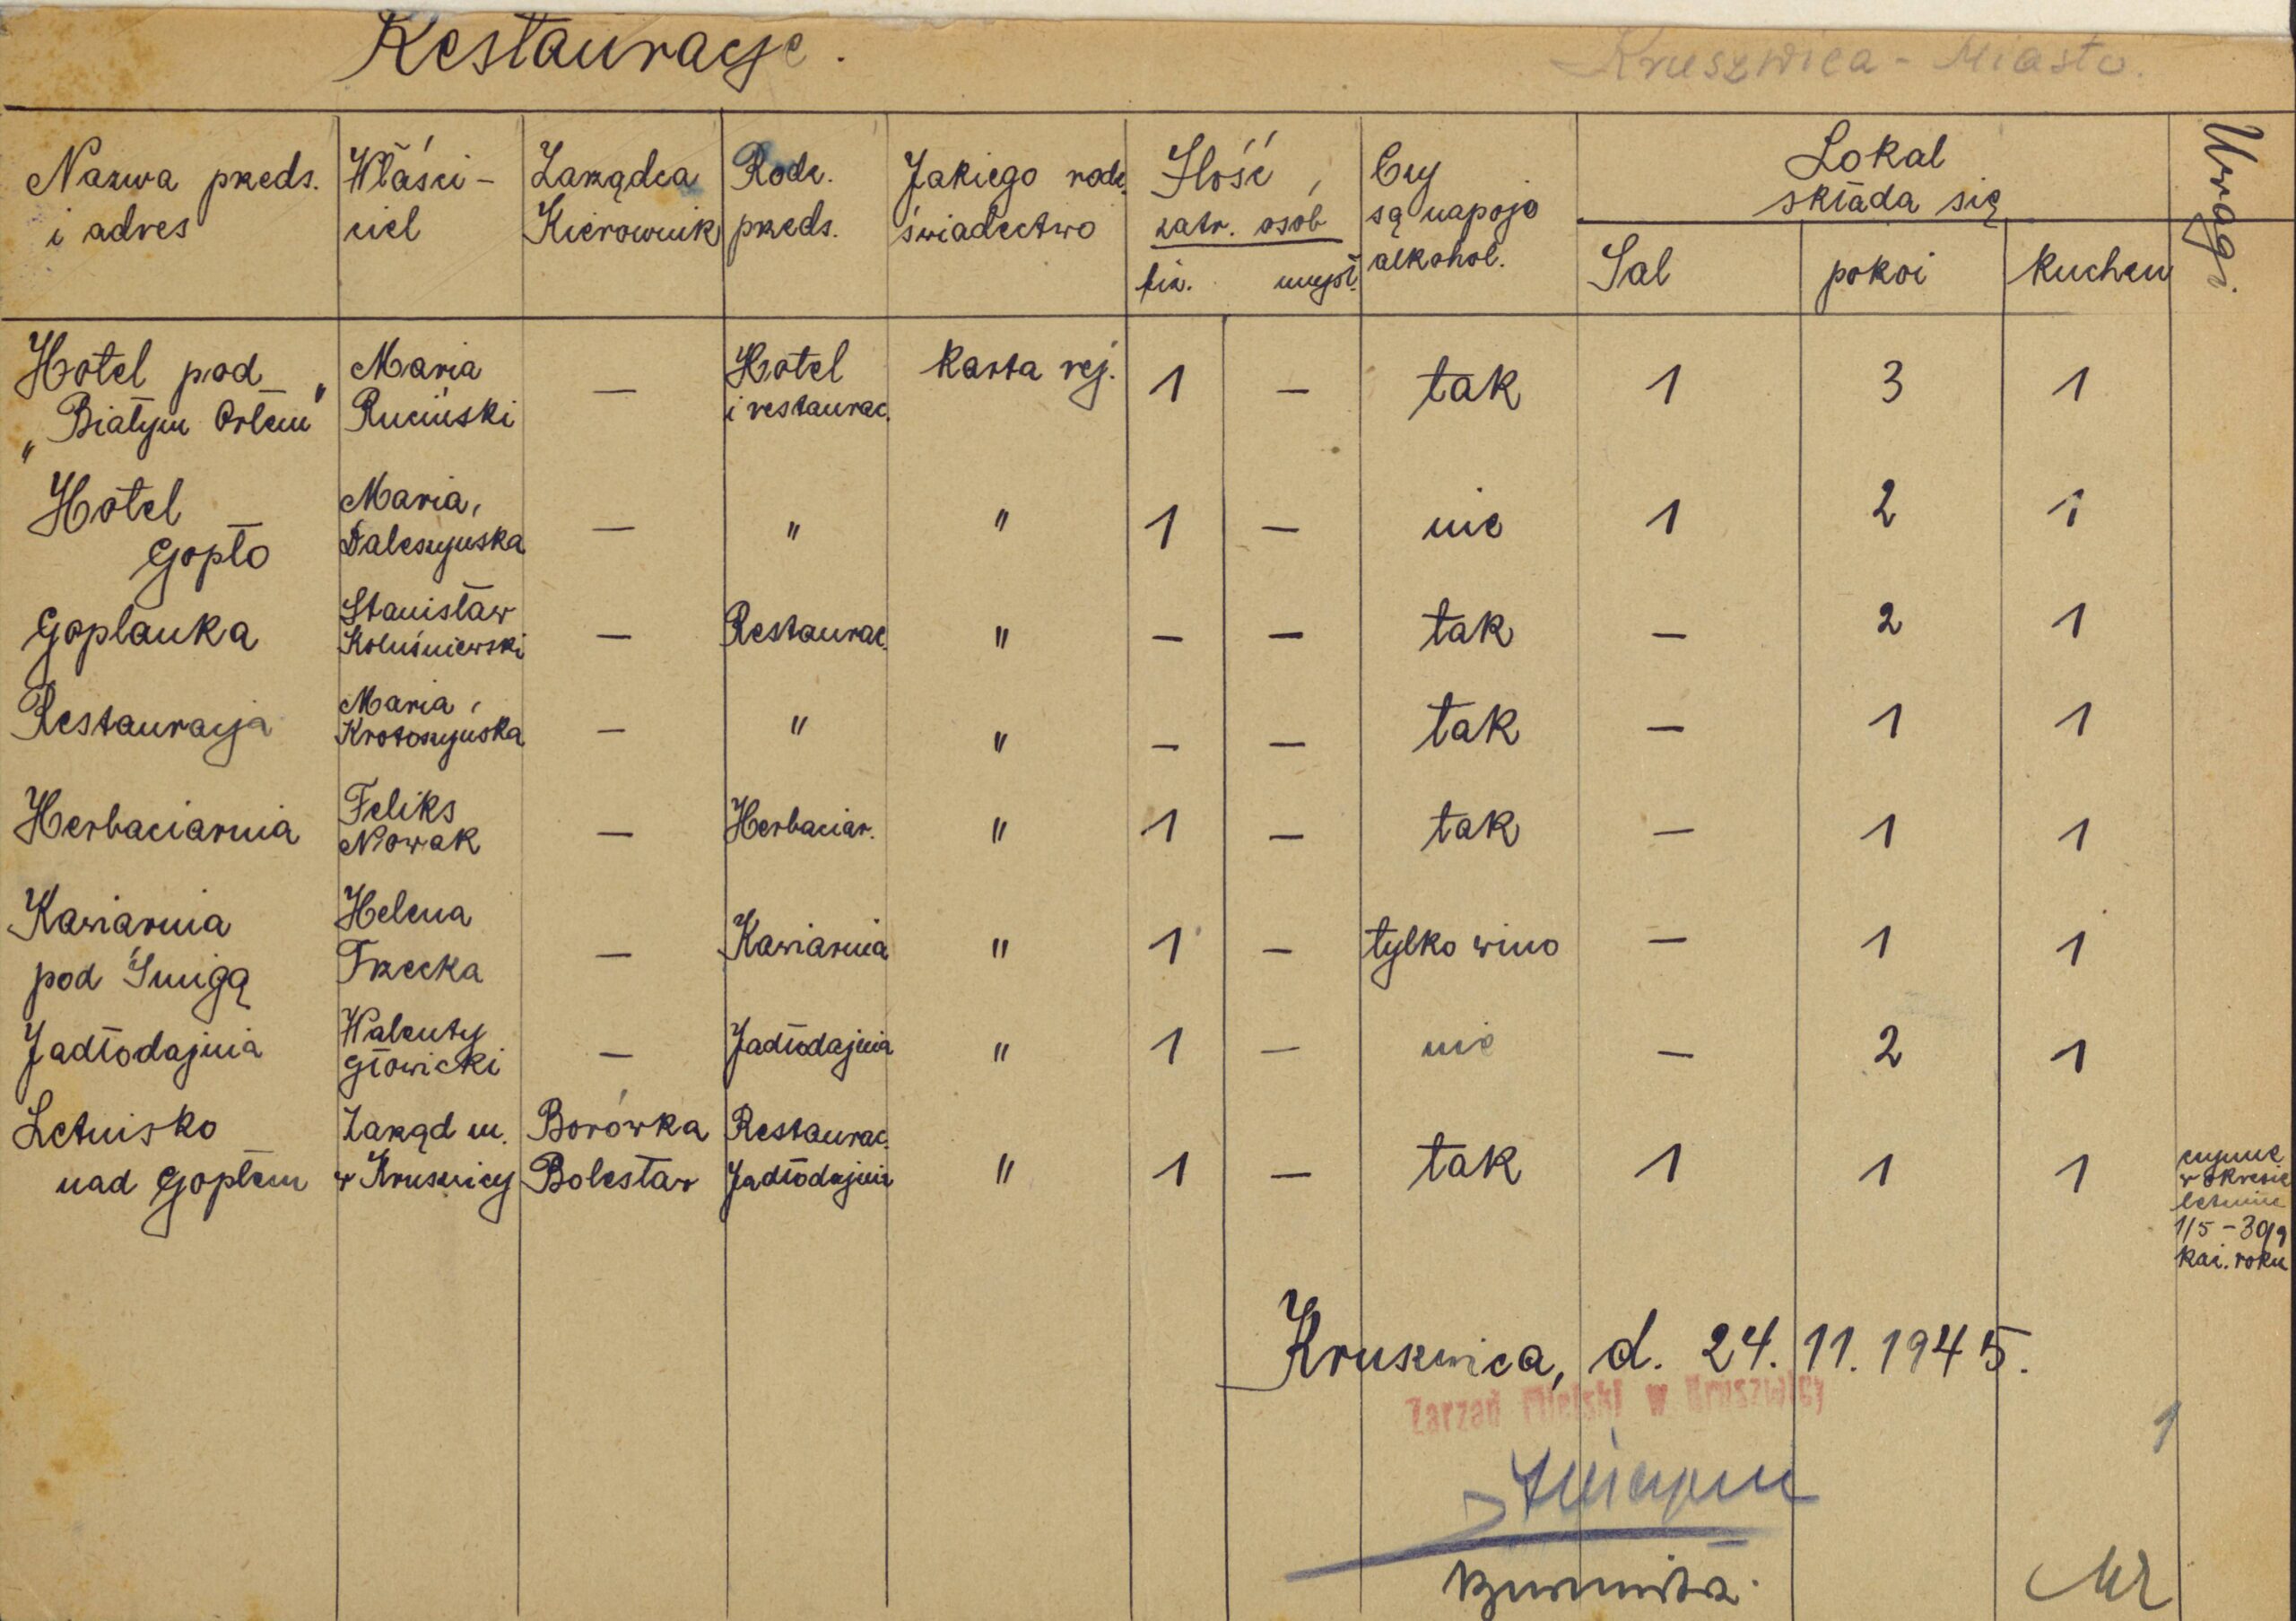 Restauracje.
Kruszwica - Miasto.
Nazwa przeds. i adres | Właści-ciel | Zarządca Kierownik | Rodz. przeds. | Jakiego rodz. świadectwo | Ilość zatr. osób | Czy są napoje alkohol. | Lokal składa się | Uwagi.
fiz. | umysł. | Sal | pokoi | kuchen
Hotel pod | Maria | — | Hotel | Karta rej. | 1 | — | tak | 1 | 3 | 1
„Białym Orłem" | Ruciński | i restaurac.
Hotel | Maria | — | " | " | 1 | — | nie | 1 | 2 | 1
Gopło | Daleszyńska
Goplanka | Stanisław | — | Restaurac. | " | — | — | tak | — | 2 | 1
Koluśniewski
Restauracja | Maria | — | " | " | — | — | tak | — | 1 | 1
Krotoszyńska
Herbaciarnia | Feliks | — | Herbaciar. | " | 1 | — | tak | — | 1 | 1
Nowak
Kawiarnia | Helena | — | Kawiarnia | " | 1 | — | tylko wino | — | 1 | 1
pod Śmigą | Trzecka
Jadłodajnia | Walenty | — | Jadłodajnia | " | 1 | — | nie | — | 2 | 1
Głowicki
Letnisko | Zarząd m. | Borówka | Restaurac. | " | 1 | — | tak | 1 | 1 | 1
nad Gopłem | w Kruszwicy | Bolesław | Jadłodajnia
czynne
w okresie
1/5 - 30/9
każ. roku
Kruszwica, d. 24.11.1945.
Zarząd Miejski w Kruszwicy
Burmistrz.